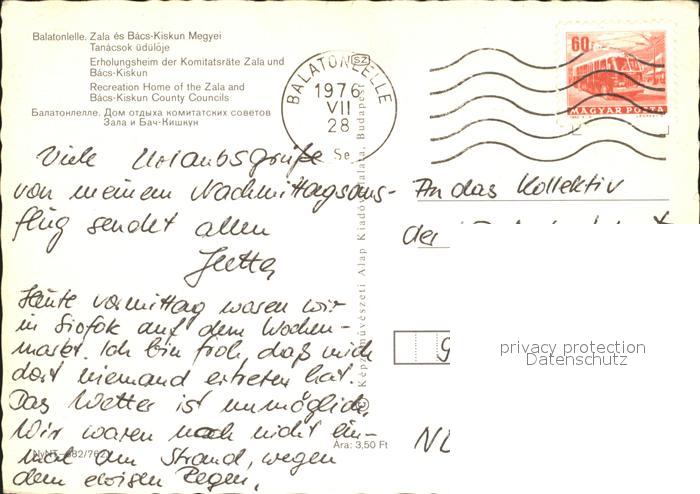 Balatonlelle. Zala és Bács-Kiskun Megyei
Tanácsok üdülője
Erholungsheim der Komitatsräte Zala und
Bács-Kiskun
Recreation Home of the Zala and
Bács-Kiskun County Councils
Балатонлелле. Дом отдыха комитатских советов
Зала и Бач-Кишкун
BALATONLELLE
SZ
1976
VII
28
Se
60f
MAGYAR POSTA
Viele Urlaubsgrüße
von meinem Nachmittagsaus-
flug sendet allen
Jutta
Heute vormittag waren wir
in Siofok auf dem Wochen-
markt. Ich bin froh, daß mich
dort niemand ertreten hat.
Das Wetter ist unmöglich.
Wir waren noch nicht ein-
mal am Strand, wegen
dem ewigen Regen.
Képzőművészeti Alap Kiadóvállalata, Budapest
Ára: 3,50 Ft
An das Kollektiv
der
9
privacy protection
Datenschutz